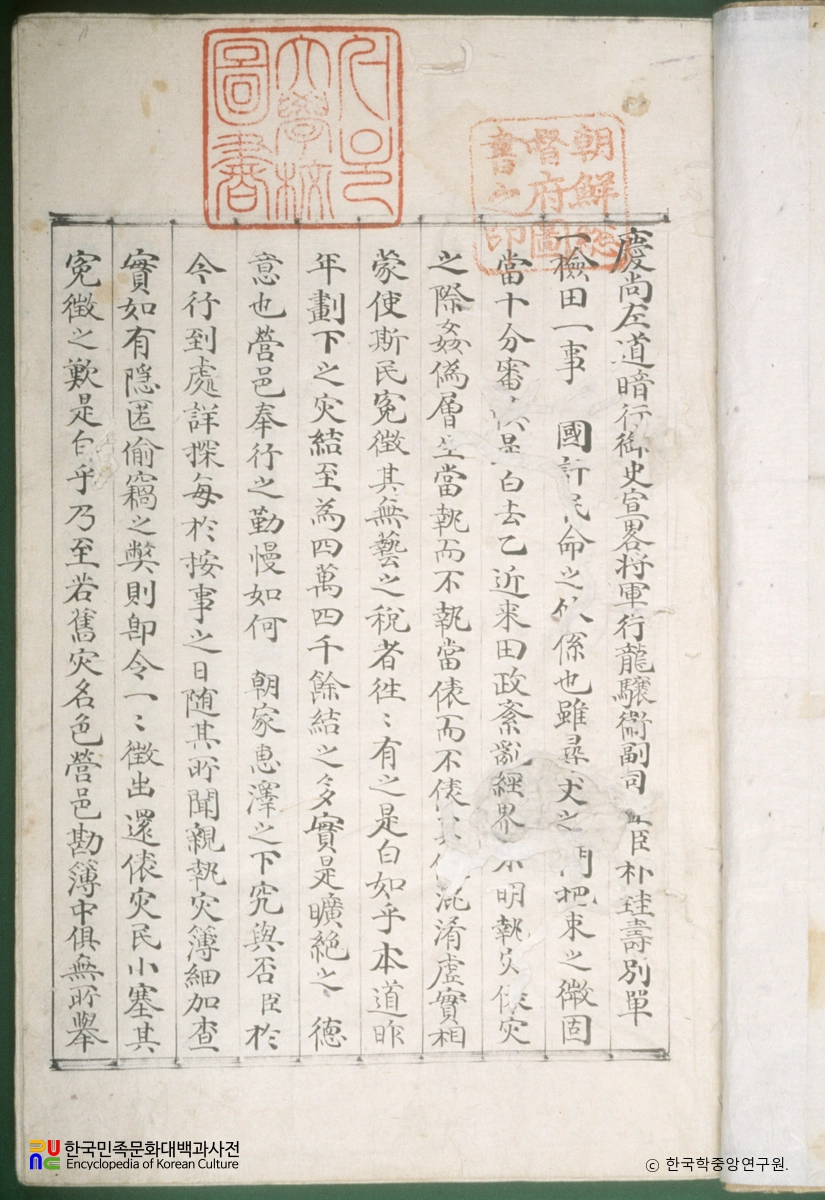 朝鮮總
督府圖
書之印
大學校
圖書
慶尚左道暗行御史宣畧將軍行龍驤衛副司 臣朴珪壽別單
一檢田一事 國計民命之所係也雖尋丈之 把束之微固
當十分審 是白去乙近來田政紊亂經界不明執灾俵灾
之際姦僞層生當執而不執當俵而不俵 混淆虛實相
蒙使斯民冤徵其無藝之稅者徃〻有之是白如乎本道昨
年劃下之灾結至爲四萬四千餘結之多實是曠絕之 德
意也營邑奉行之勤慢如何 朝家惠澤之下究與否臣於
今行到處詳探每於按事之日随其所聞親執灾簿細加查
實如有隱匿偷竊之弊則卽令一〻徵出還俵灾民小塞其
冤徵之歎是白乎乃至若舊灾名色營邑勘簿中俱無所擧
한국민족문화대백과사전
Encyclopedia of Korean Culture
ⓒ 한국학중앙연구원.